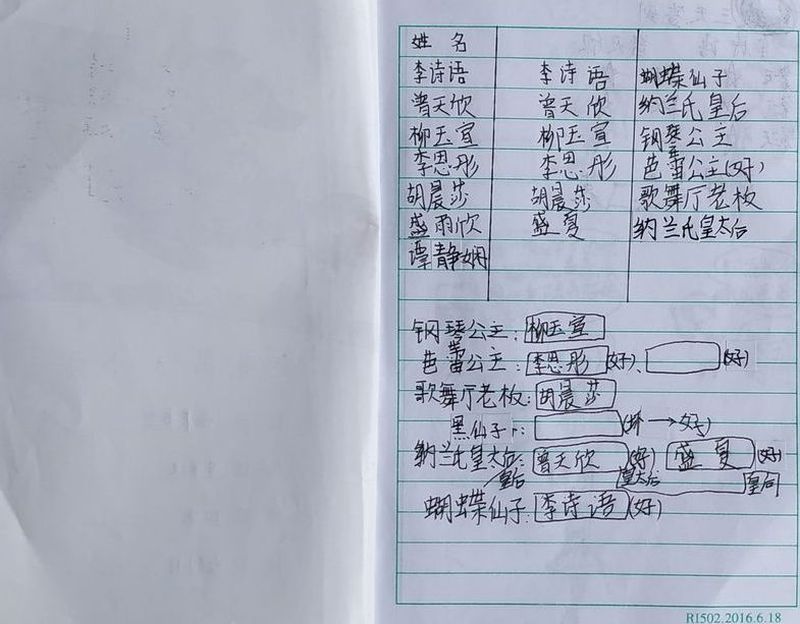 姓 名
李诗语 李诗语 蝴蝶仙子
曾天欣 曾天欣 纳兰氏皇后
柳玉宣 柳玉宣 钢琴公主
李思彤 李思彤 芭蕾公主(好)
胡晨莎 胡晨莎 歌舞厅老板
盛雨欣 盛夏 纳兰氏皇太后
谭静娴
钢琴公主: 柳玉宣
芭蕾公主: 李思彤 (好)、 (好)
歌舞厅老板: 胡晨莎
黑仙子: (坏→好)
纳兰氏皇太后: 曾天欣 (好) 盛夏 (好)
皇后 皇太后
蝴蝶仙子: 李诗语 (好)
R1502.2016.6.18